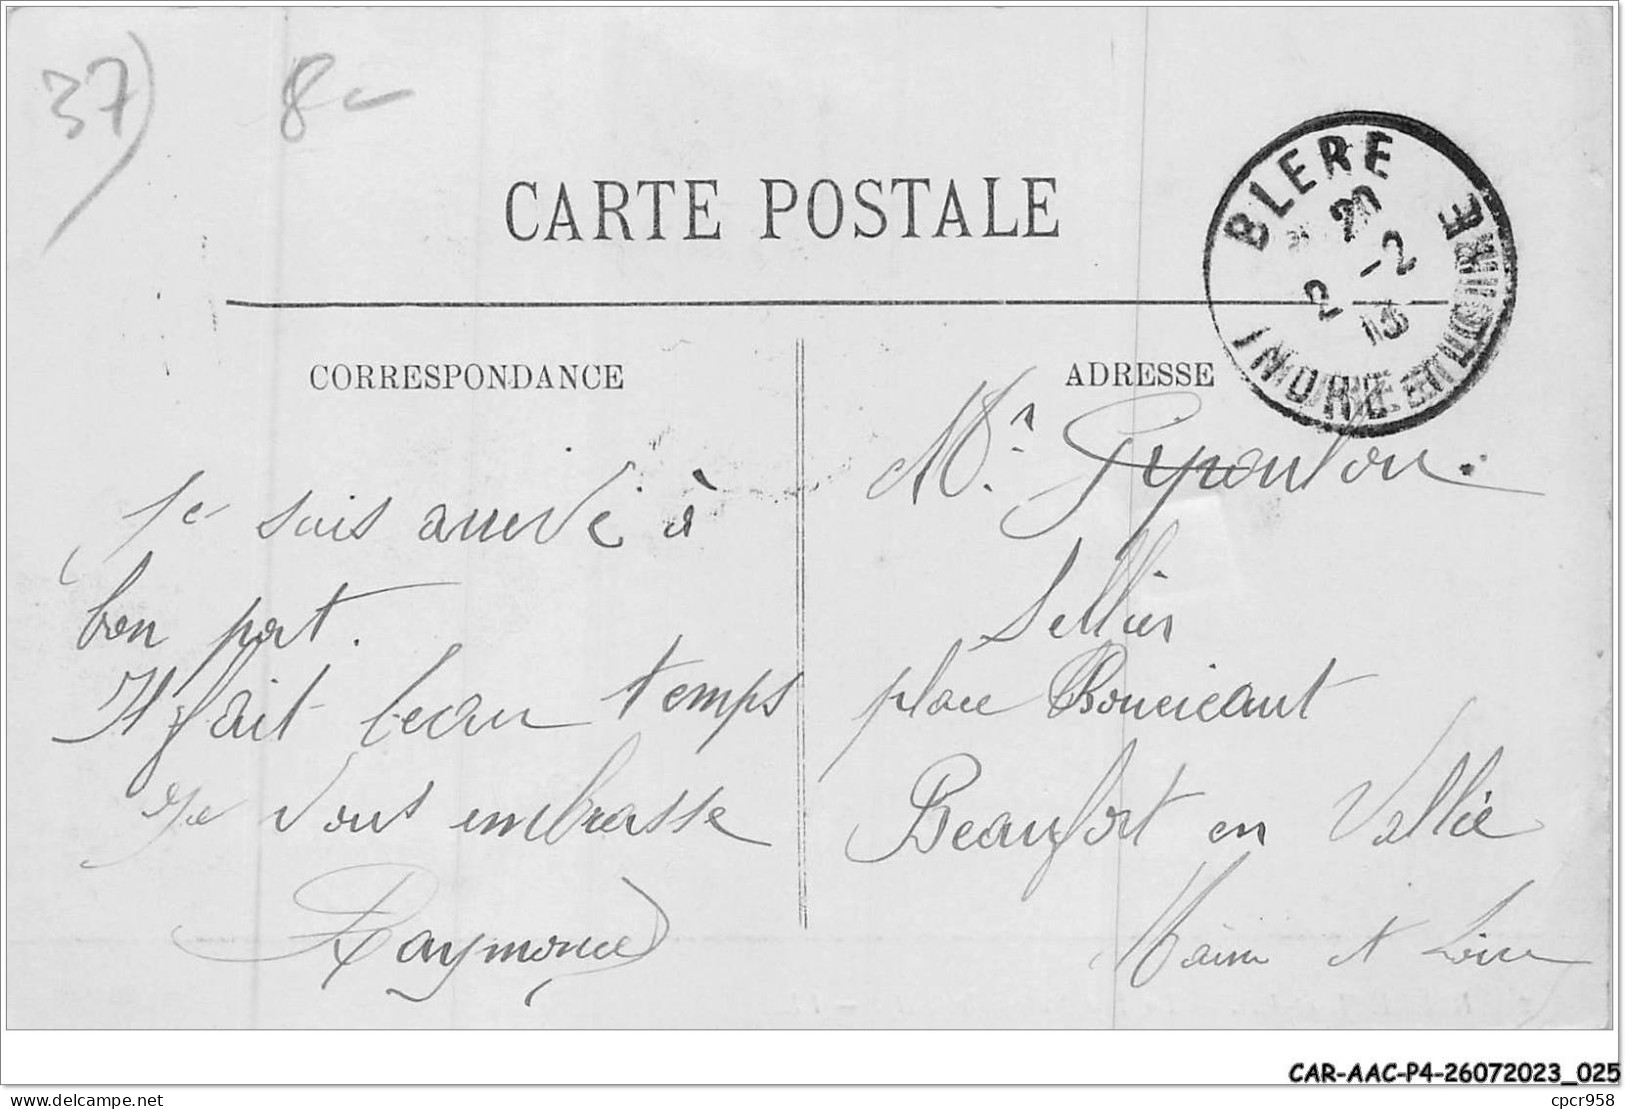 37) 8
CARTE POSTALE
BLERE
20
2 -2
13
INDRE ET LOIRE
CORRESPONDANCE
ADRESSE
Je suis arrivé à
bon port.
Il fait beau temps
Je vous embrasse
Raymond
Mr.
Sellier
place Boucicaut
Beaufort en Vallée
Maine et Loire
CAR-AAC-P4-26072023_025
www.delcampe.net
cpcr958